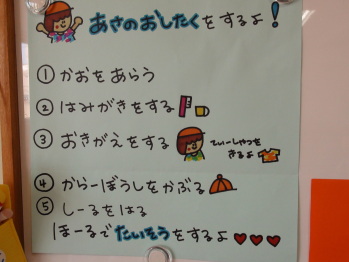 あさのおしたくをするよ!
①かおをあらう
②はみがきをする
③おきがえをする
てぃーしゃつを
きるよ
④からーぼうしをかぶる
⑤しーるをはる
ほーるでたいそうをするよ